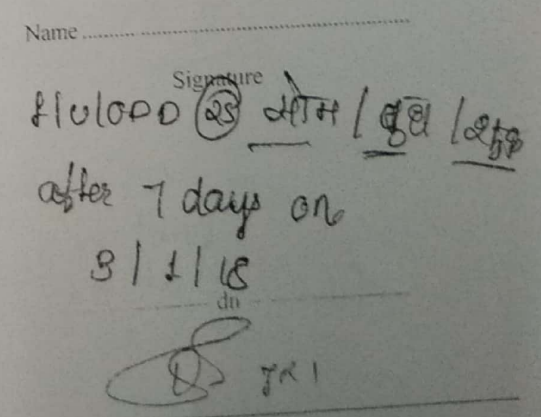 Name
Signature
f/u/OPD 25 सोम / बुध / शुक्र
after 7 days on
3/1/18
dn
JR1